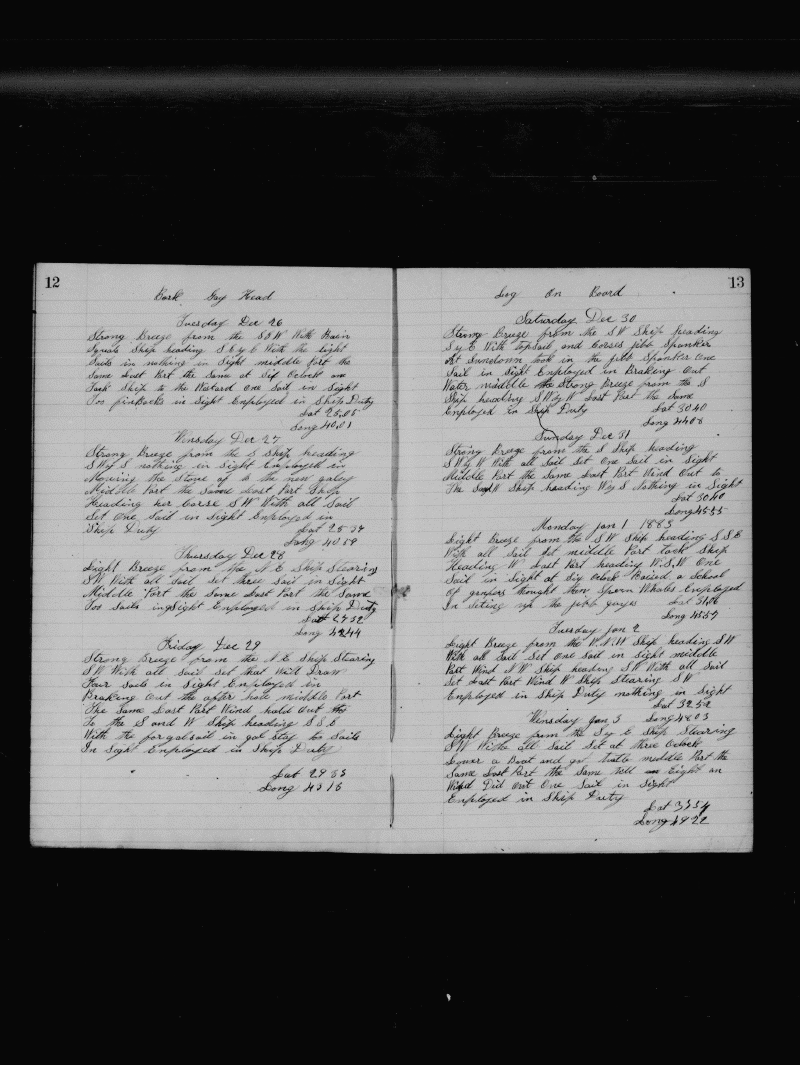 12
Bark Gay Head
Tuesday Dec 26
Strong Breeze from the SSW With Rain
Squals Ship heading S E y E With the light
Sails in nothing in Sight middle Part the
Same Last Part the Same at Six Oclock one
Tack Ship to the Wstard One Sail in Sight
Too finbacks in Sight Employed in Ship Duty
Lat 25,05
Long 40,01
Wensday Dec 27
Strong Breeze from the S Ship heading
SW y S nothing in Sight Employed in
Moveing the Stove of to the new galey
Middle Part the Same Last Part Ship
Heading her Corse S W With All Sail
Set One Sail in Sight Employed in
Ship Duty Lat 25 37
Long 40 59
Thursday Dec 28
Light Breeze from the N.E Ship Stearing
SW With all Sail Set three Sail in Sight
Middle Part the Same Last Part the Same
Too Sails in Sight Employed in Ship Duty
Lat 27 32
Long 42 44
Friday Dec 29
Strong Breeze from the N.E Ship Stearing
SW With all Sail Set that Will Draw
Four Sails in Sight Employed in
Braking Out the after hole middle Part
The Same Last Part Wind hald Out
To the S and W Ship heading S S E
With the forgalsail in gal Stay to Sails
In Sight Employed in Ship Duty
Lat 29 33
Long 43 16
13
Log On Board
Saturday Dec 30
Strong Breeze from the SW Ship heading
S y E With topsail and Corses jibb Spanker
At Sundown took in the jibb Spanker One
Sail in Sight Employed in Braking Out
Water middle the Strong Breeze from the S
Ship heading SW by W Last Part the Same
Employed in Ship Duty Lat 30 40
Long 44 08
Sunday Dec 31
Strong Breeze from the S Ship heading
S W y W With all Sail Set One Sail in Sight
Middle Part the Same Last Part Wind Out to
The W Ship heading W y S Nothing in Sight
Lat 30 40
Long 45 55
Monday Jan 1 1883
Light Breeze from the SW Ship heading S S E
With all Sail Set middle Part tack Ship
Heading W Last Part heading W.S.W One
Sail in Sight at Six Oclock Raised a School
Of graders thought then Sperm Whales Employed
In Seting up the jibb guyes Lat 31 06
Long 45 57
Tuesday Jan 2
Light Breeze from the W.N.W Ship heading SW
With all Sail Set One Sail in Sight middle
Part Wind N W Ship heading SW With all Sail
Set Last Part Wind W Ship Stearing SW
Employed in Ship Duty nothing in Sight
Lat 32 52
Wensday Jan 3 Long 48 03
Light Breeze from the S y E Ship Stearing
SW With all Sail Set at three Oclock
Lower a Boat and got Turtle middle Part the
Same Last Part the Same till Eight an
Wind Did Out One Sail in Sight
Employed in Ship Duty
Lat 33 54
Long 49 22